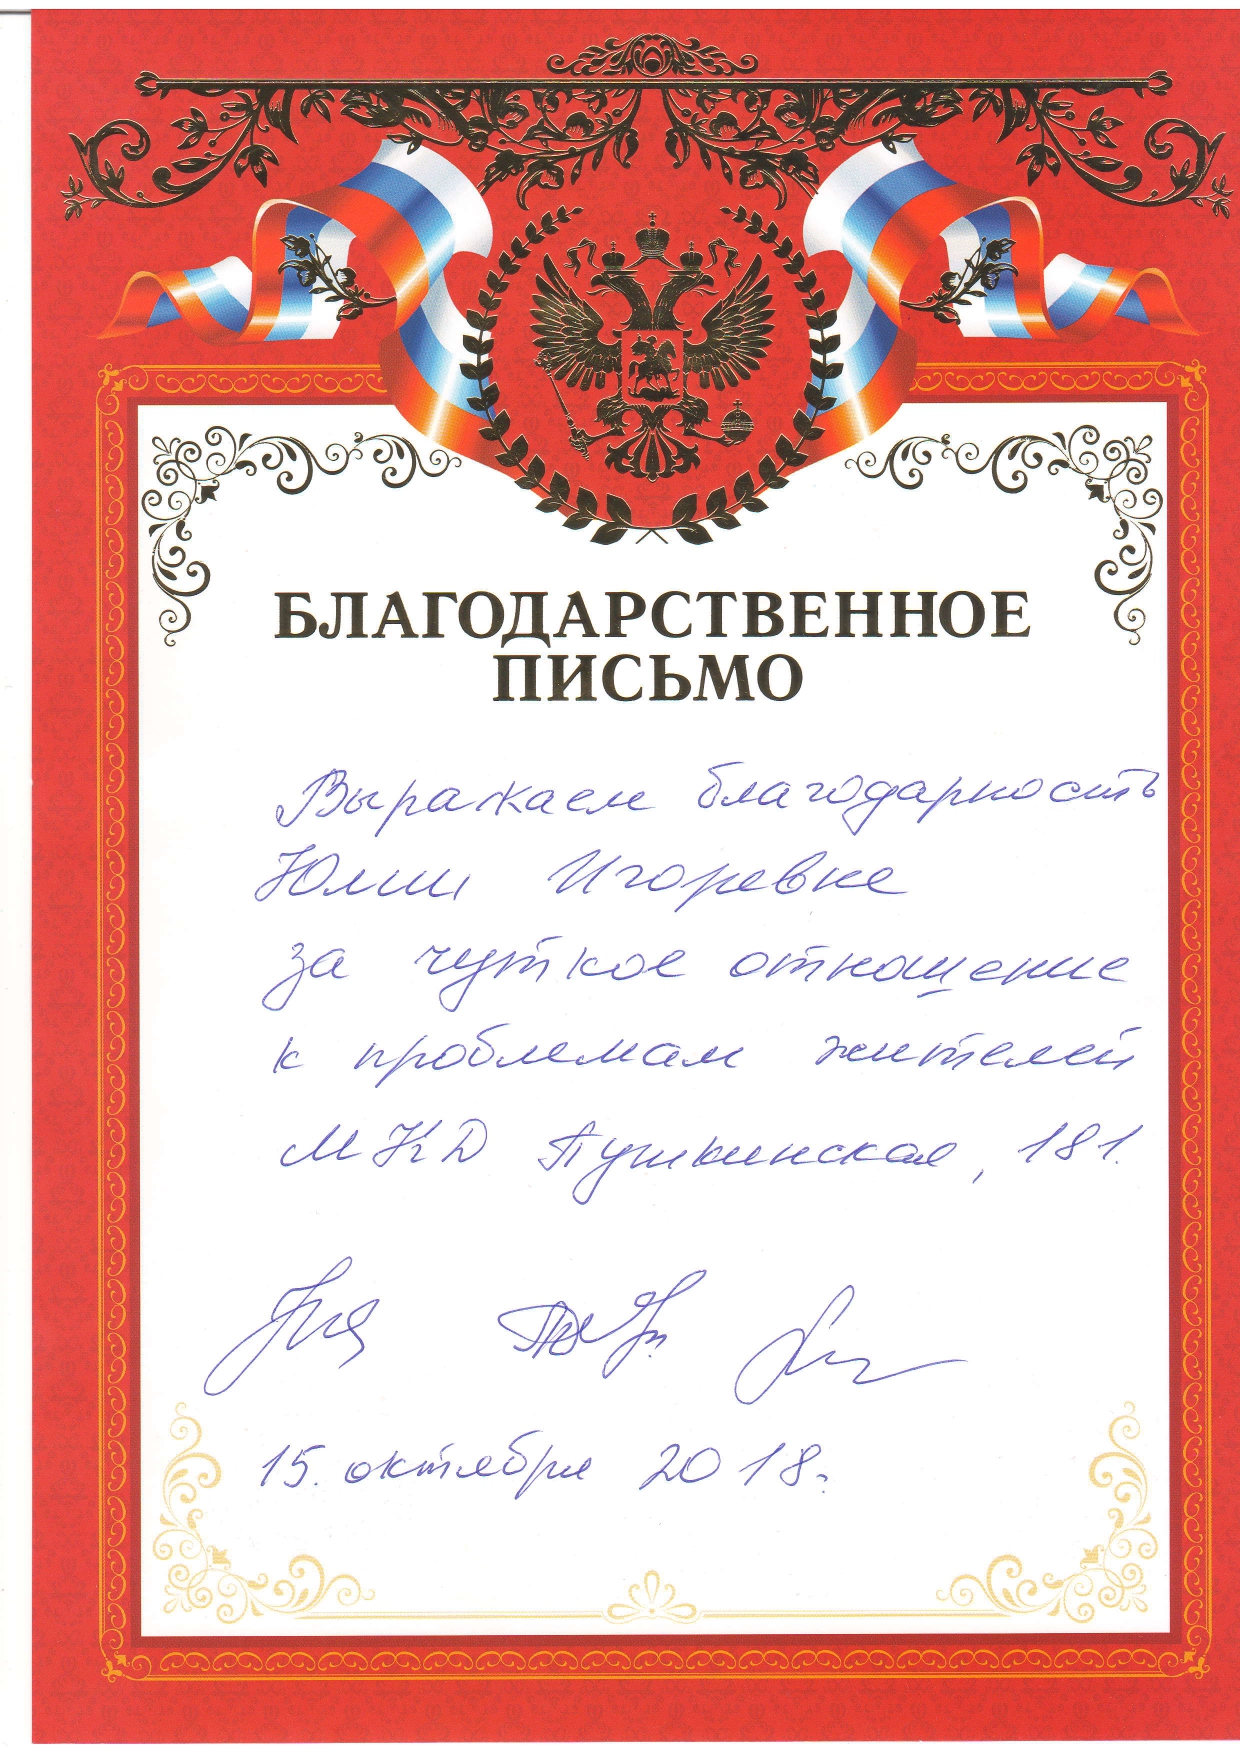 БЛАГОДАРСТВЕННОЕ
ПИСЬМО
Выражаем благодарность
Юлии Игоревне
за чуткое отношение
к проблемам жителей
МКД Пушкинская, 181.
15. октября 2018.